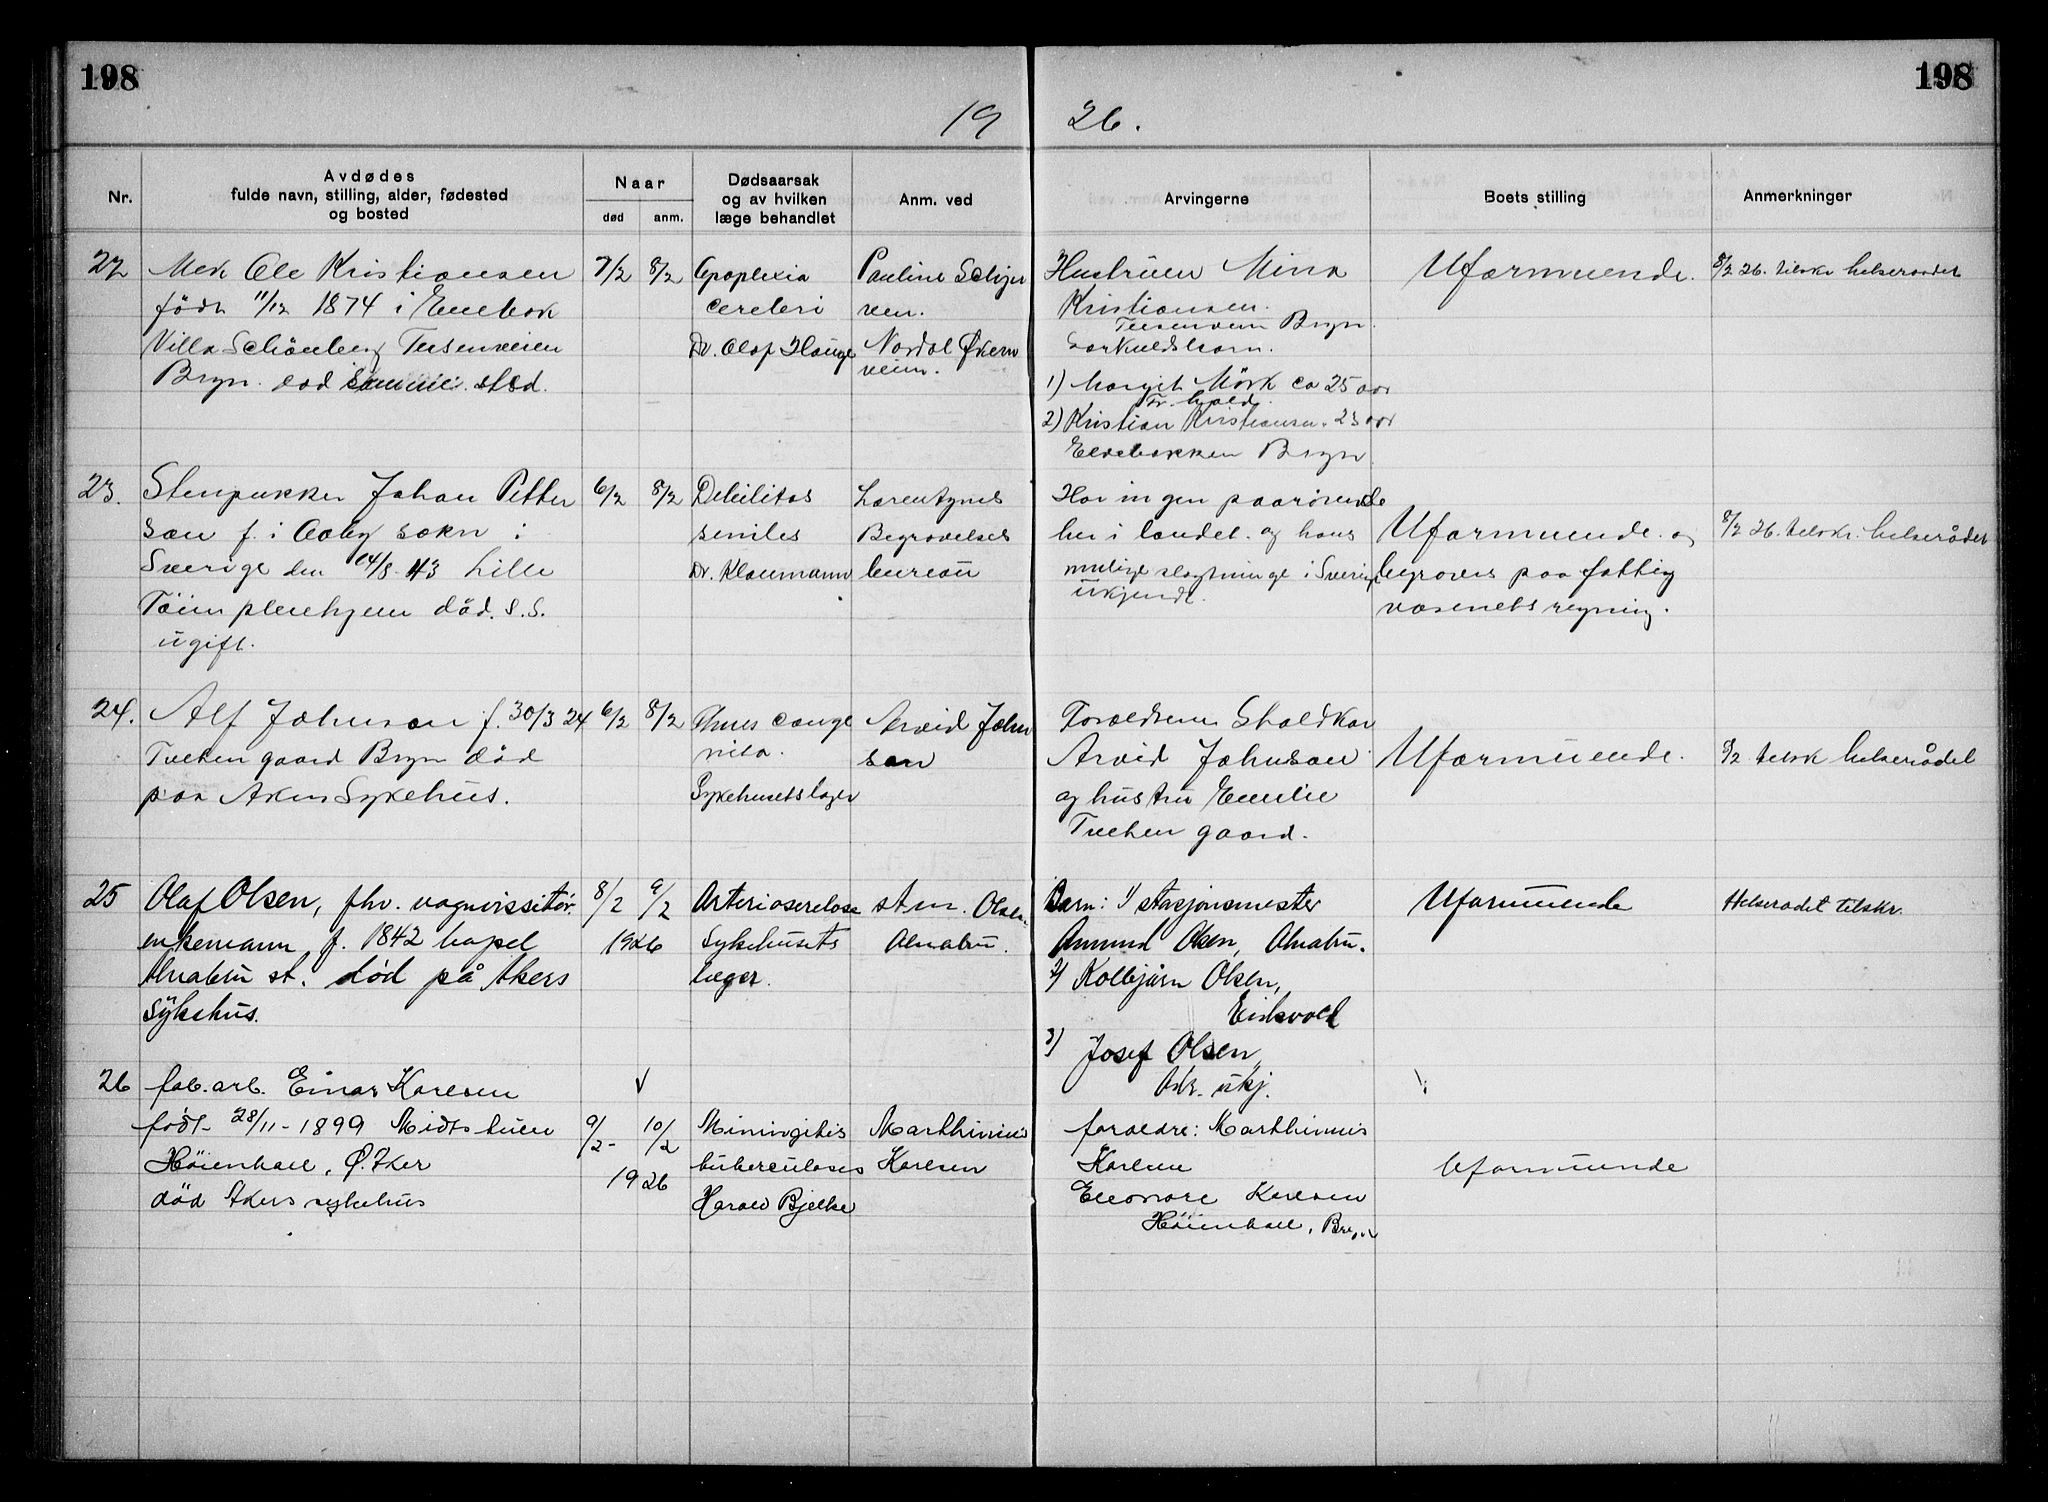 198
198
19 26.
Nr.
Avdødes
fulde navn, stilling, alder, fødested
og bosted
Naar
død
anm.
Dødsaarsak
og av hvilken
læge behandlet
Anm. ved
Arvingerne
Boets stilling
Anmerkninger
22
Mek Ole Kristiansen
født 11/12 1874 i Enebak
Villa Schönberg Teisenveien
Bryn. død samme sted.
7/2
8/2
Apoplexia
cerebri
Dr. Olaf Hauge
Pauline
Nordal Økern
veien.
Hustruen Mina
Kristiansen.
Teisenveien Bryn.
Særkuldsbarn.
1) Margit Mörk ca 25 aar
2) Kristian Kristiansen. 23 aar
Bryn
Uformuende.
8/2 26. tilskr helseraadet
23.
Stenpukker Johan Petter
son f. i Aaby sokn i
Sverige den 24/8 43 Lille
Töien pleiehjem död. S.S.
ugift.
6/2
8/2
Debilitas
seniles
Dr. Klaumann
Begravelses
bureau
Har ingen paarørende
her i landet. og hans
mulige slegtninge i Sverige
ukjendt.
Uformuende. og
begraves paa fattig
væsenets regning.
8/2 26. tilskr. helserådet
24.
Alf Johnson f. 30/3 24
Tveten gaard Bryn död
paa Akers Sykehus.
6/2
8/2
nita.
Sykehusets læger
Arvid John
son
Forældrene
Arvid Johnson
og hustru Emilie
Tveten gaard.
Uformuende.
8/2 tilskr helserådet
25
Olaf Olsen, fhv. vognvissitör.
enkemann, f. 1842
Alnabru st. død på Akers
Sykehus.
8/2
9/2
1926
Arteriosclerose
Sykehusets
læger.
st m. Olsen
Alnabru.
Barn: 1/ stasjonsmester
Amund Olsen, Alnabru.
2/ Kolbjørn Olsen,
Eidsvold
3/ Josef Olsen,
Adr. ukj.
Uformuende
Helseradet tilskr.
26
fab. arb. Einar Karlsen
født 28/11-1899 Midtstuen
Höienhall, Ø. Aker
död Akers sykehus
9/2-
10/2
1926
Miningitis
tuberculoses
Harald Bjelke
Marthinius
Karlsen
foreldre: Marthinius
Karlsen
Eleonore Karlsen
Höienhall, Bryn
Uformuende